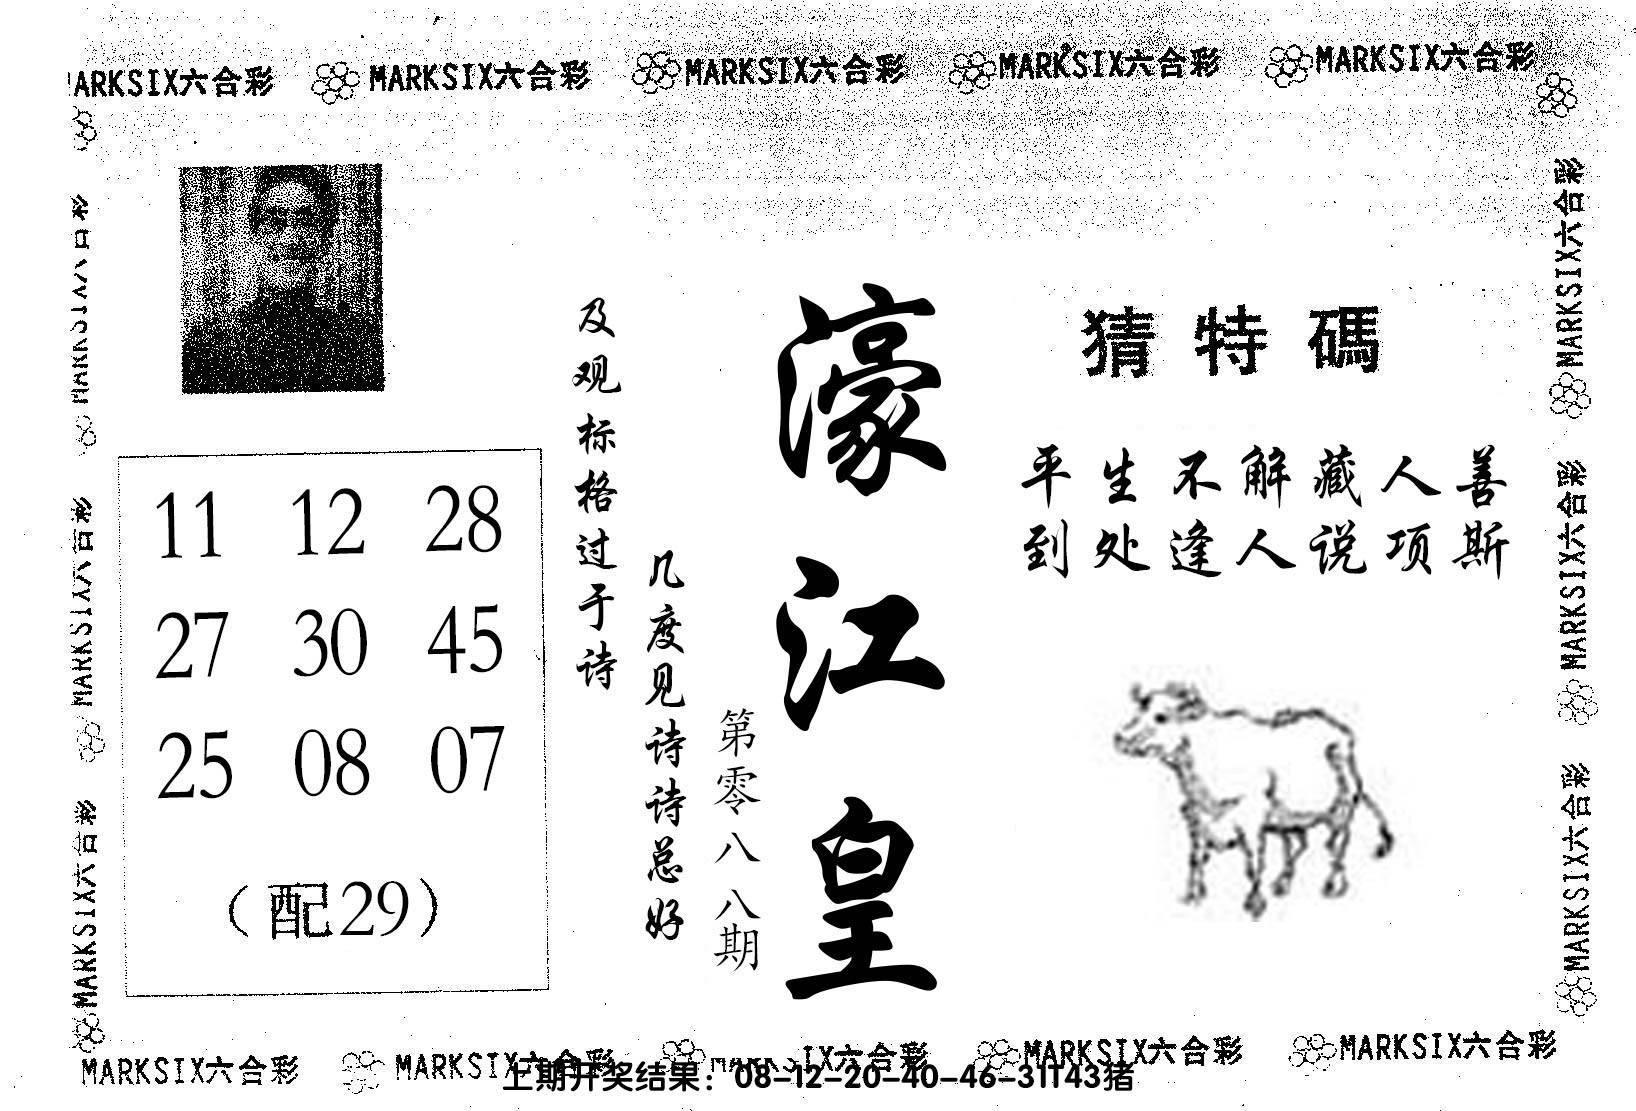 MARKSIX六合彩 MARKSIX六合彩 MARKSIX六合彩 MARKSIX六合彩 MARKSIX六合彩
猜特碼
平生不解藏人善
到处逢人说项斯
濠江皇
第零八八期
几度见诗诗总好
及观标格过于诗
11 12 28
27 30 45
25 08 07
(配29)
MARKSIX六合彩
MARKSIX六合彩
MARKSIX六合彩
MARKSIX六合彩
MARKSIX六合彩
MARKSIX六合彩
MARKSIX六合彩 MARKSIX六合彩 MARKSIX六合彩 MARKSIX六合彩 MARKSIX六合彩
上期开奖结果：08-12-20-40-46-31T43猪